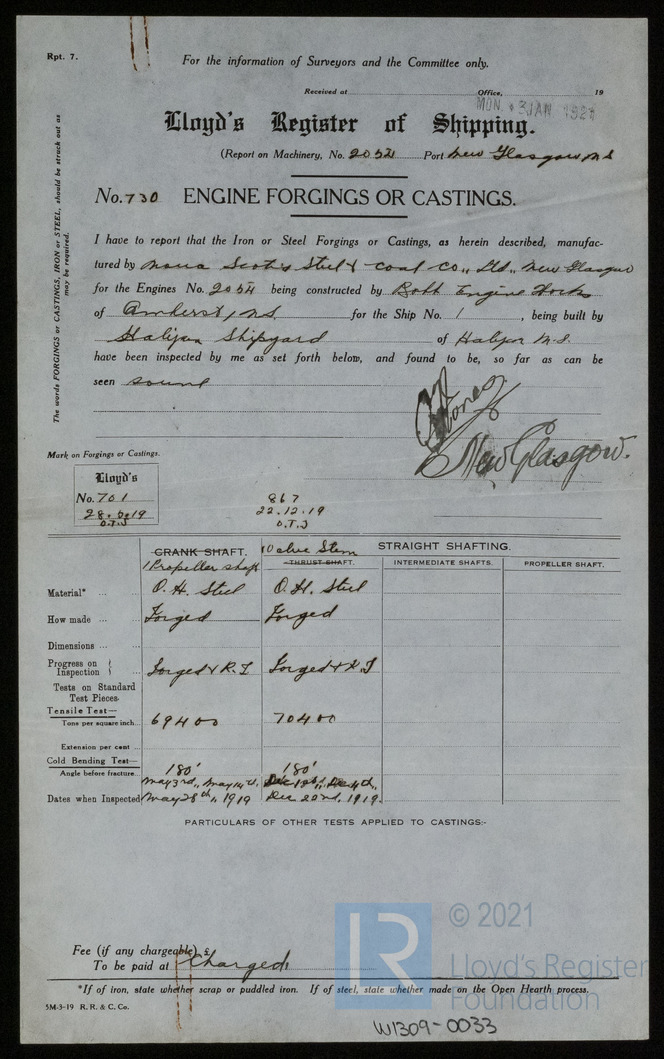 Rpt. 7.
For the information of Surveyors and the Committee only.
Received at Office, 19
MON. 3 JAN 192
Lloyd's Register of Shipping.
(Report on Machinery, No. 2052 Port New Glasgow N.S
No. 730 ENGINE FORGINGS OR CASTINGS.
The words FORGINGS or CASTINGS, IRON or STEEL, should be struck out as may be required.
I have to report that the Iron or Steel Forgings or Castings, as herein described, manufac-
tured by Nova Scotia Steel & Coal Co., Ltd., New Glasgow
for the Engines No. 2052 being constructed by Robb Engine Works
of Amherst, N.S. for the Ship No. 1, being built by
Halifax Shipyard of Halifax N.S.
have been inspected by me as set forth below, and found to be, so far as can be
seen sound
New Glasgow.
Mark on Forgings or Castings.
Lloyd's
No. 701
28.5.19
O.T.J
867
22.12.19
O.T.J
CRANK SHAFT. 1 Valve Stem STRAIGHT SHAFTING.
1 Propeller shaft THRUST SHAFT. INTERMEDIATE SHAFTS. PROPELLER SHAFT.
Material* O. H. Steel O. H. Steel
How made Forged Forged
Dimensions
Progress on Inspection Forged & R.T Forged & R.T
Tests on Standard Test Pieces-
Tensile Test—
Tons per square inch 69400 70400
Extension per cent
Cold Bending Test—
Angle before fracture 180° 180°
May 3rd, May 14th, Dec 1st, Dec 4th,
Dates when Inspected May 28th, 1919 Dec 22nd, 1919.
PARTICULARS OF OTHER TESTS APPLIED TO CASTINGS:-
Fee (if any chargeable) £
To be paid at Charged
*If of iron, state whether scrap or puddled iron. If of steel, state whether made on the Open Hearth process.
5M-3-19 R. R. & C. Co.
W1309-0033
LR
© 2021
Lloyd's Register
Foundation